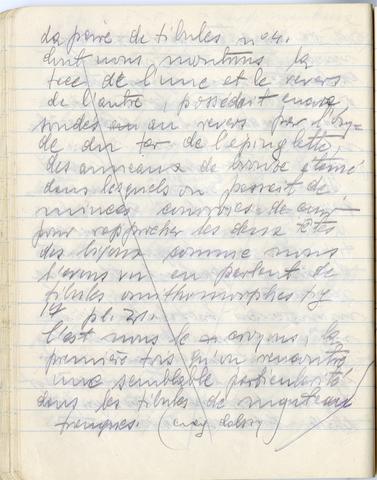 La paire de fibules n° 4.
dont nous montrons la
face de l'une et le revers
de l'autre, possédait encore
soudés au revers par l'oxy-
de du fer de l'épinglette,
des anneaux de bronze étamé
dans lesquels on passait de
minces courroies de cuir
pour rapprocher les deux têtes
des bijoux comme nous
l'avons vu en parlant de
fibules ornithomorphes
pl. 21.
C'est nous le croyons, la
première fois qu'on rencontre
une semblable particularité
dans les fibules de
franques.